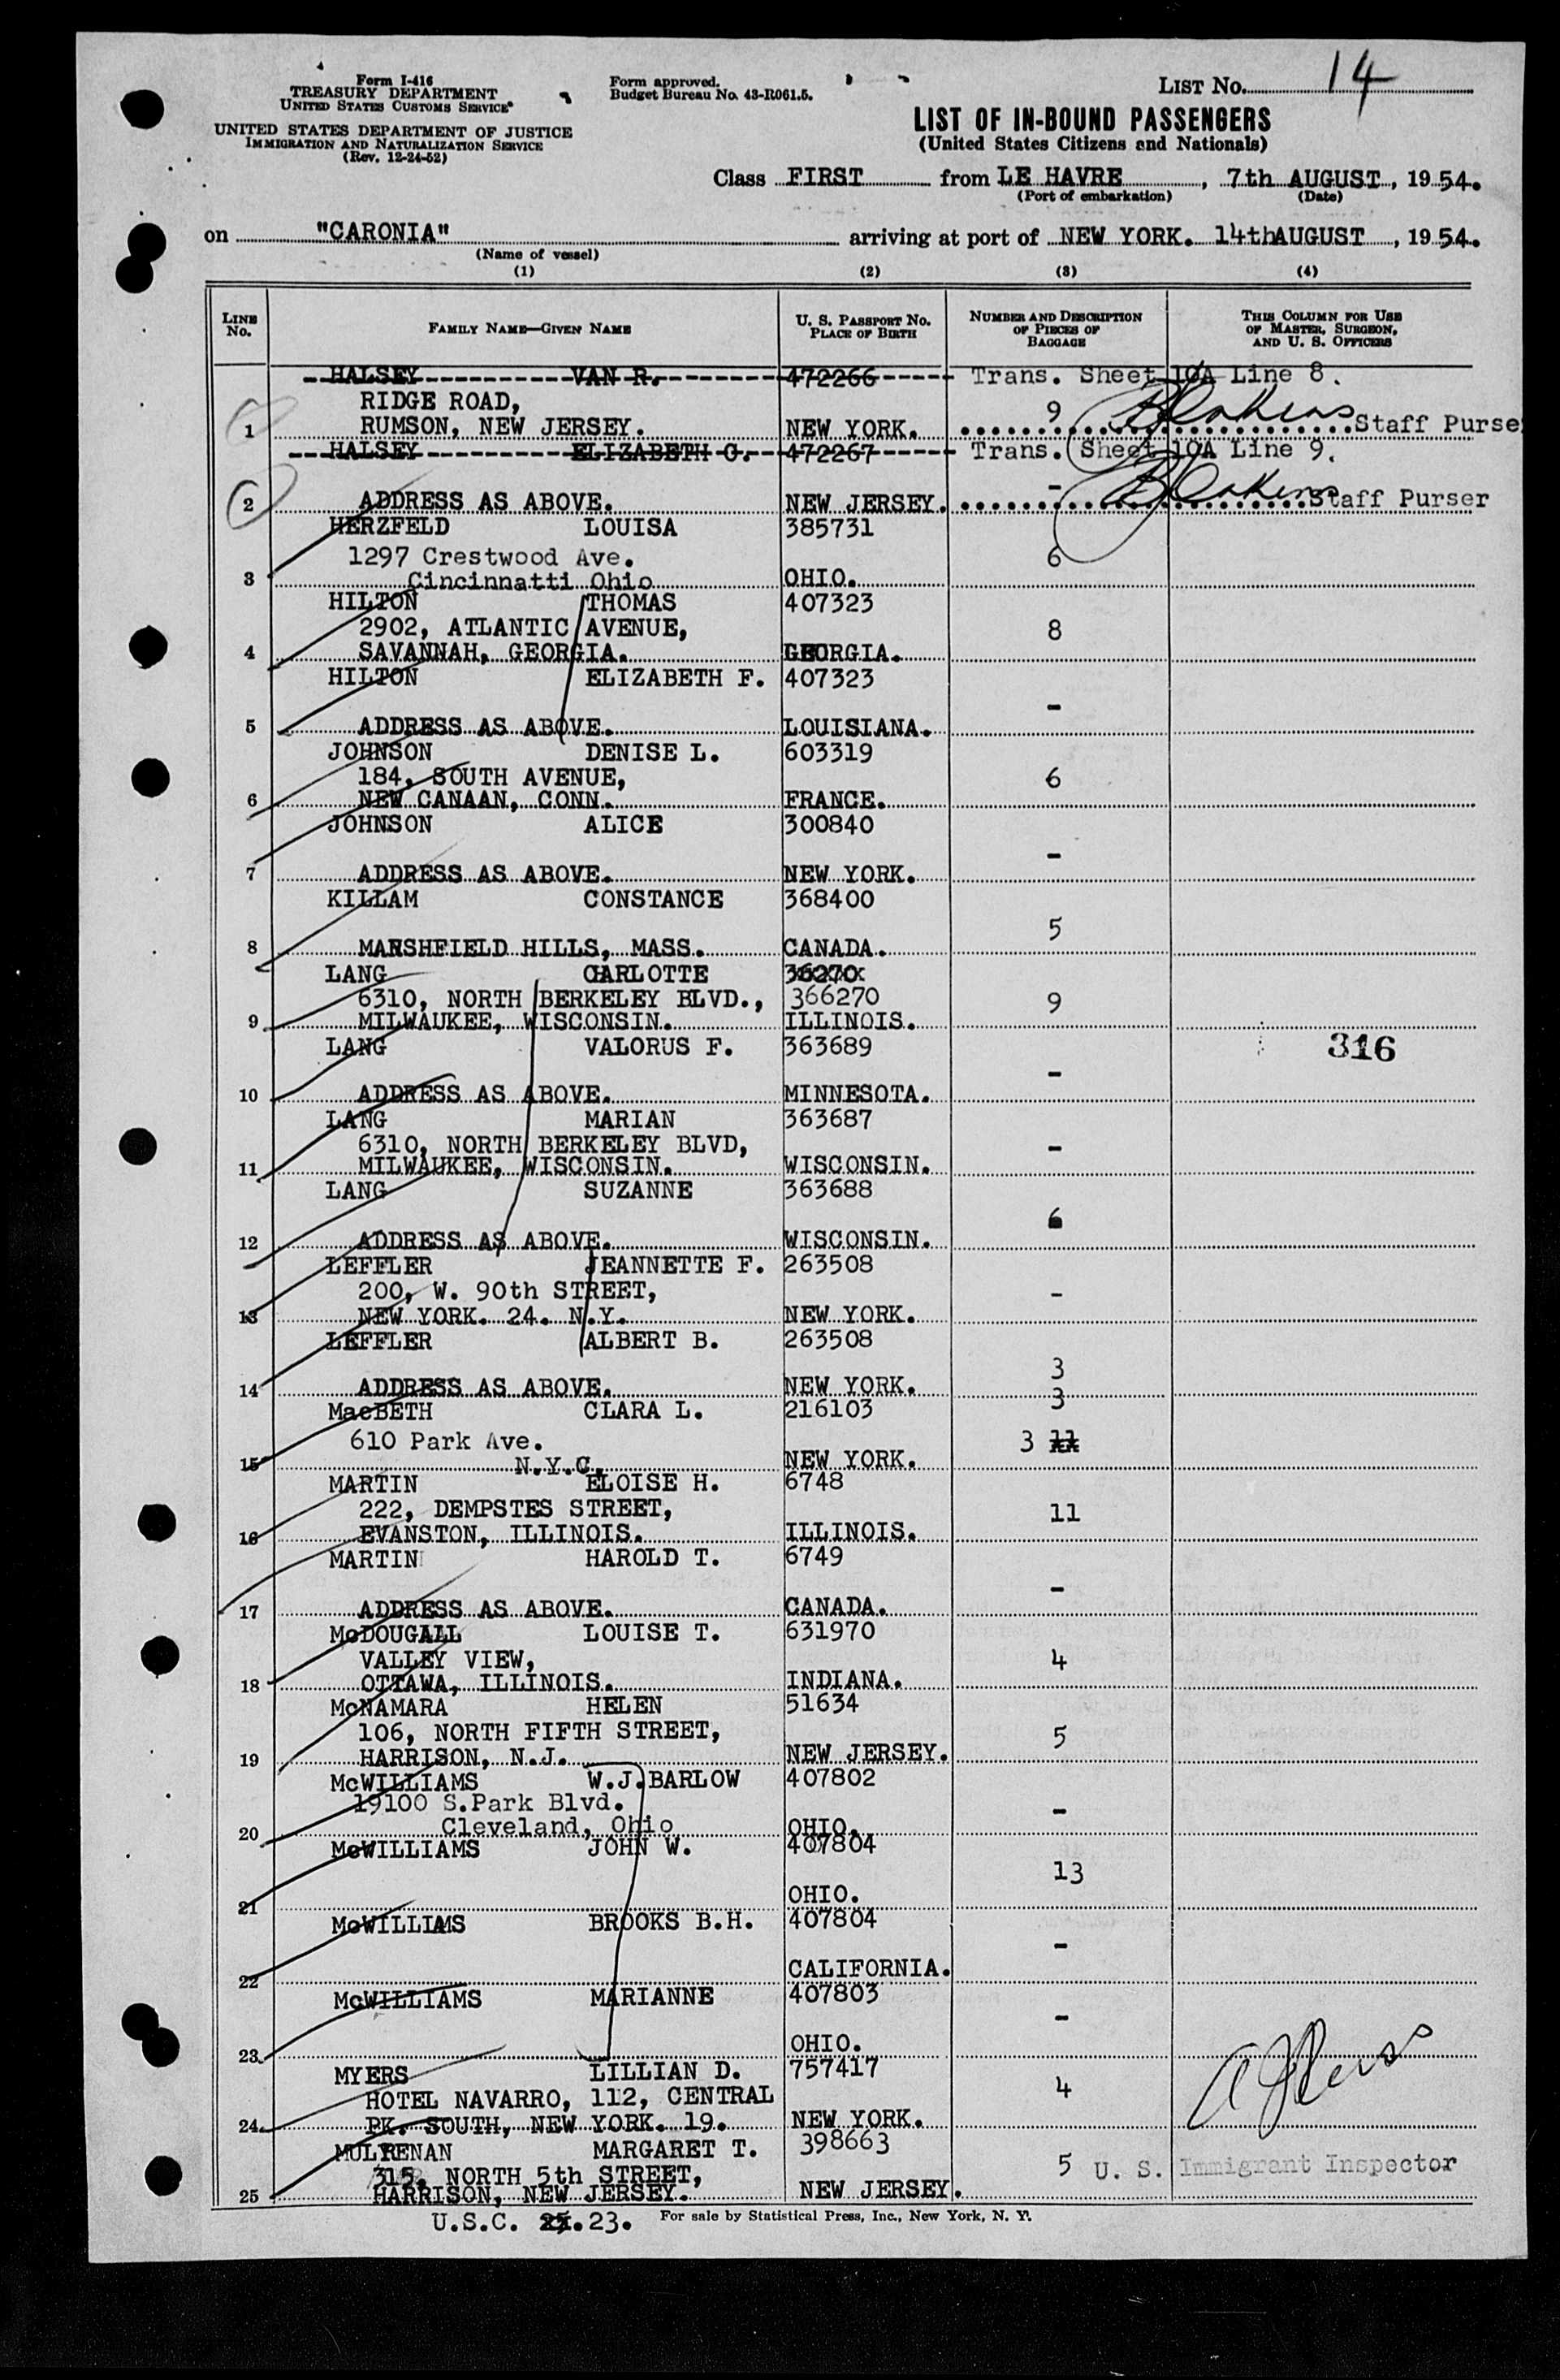 Form I-416
TREASURY DEPARTMENT
UNITED STATES CUSTOMS SERVICE
UNITED STATES DEPARTMENT OF JUSTICE
IMMIGRATION AND NATURALIZATION SERVICE
(Rev. 12-24-52)
Form approved.
Budget Bureau No. 43-R061.5.
LIST No. 14
LIST OF IN-BOUND PASSENGERS
(United States Citizens and Nationals)
Class FIRST from LE HAVRE, 7th AUGUST, 1954.
(Port of embarkation) (Date)
on "CARONIA" arriving at port of NEW YORK. 14thAUGUST, 1954.
(Name of vessel)
(1) (2) (3) (4)
LINE No. FAMILY NAME—GIVEN NAME U. S. PASSPORT No. PLACE OF BIRTH NUMBER AND DESCRIPTION OF PIECES OF BAGGAGE THIS COLUMN FOR USE OF MASTER, SURGEON, AND U. S. OFFICERS
HALSEY VAN R. 472266 Trans. Sheet 10A Line 8.
RIDGE ROAD, 9
1 RUMSON, NEW JERSEY. NEW YORK. Staff Purser
HALSEY ELIZABETH C. 472267 Trans. Sheet 10A Line 9.
-
2 ADDRESS AS ABOVE. NEW JERSEY. Staff Purser
HERZFELD LOUISA 385731
1297 Crestwood Ave. 6
3 Cincinnatti Ohio OHIO.
HILTON THOMAS 407323
2902, ATLANTIC AVENUE, 8
4 SAVANNAH, GEORGIA. GEORGIA.
HILTON ELIZABETH F. 407323
-
5 ADDRESS AS ABOVE. LOUISIANA.
JOHNSON DENISE L. 603319
184, SOUTH AVENUE, 6
6 NEW CANAAN, CONN. FRANCE.
JOHNSON ALICE 300840
-
7 ADDRESS AS ABOVE. NEW YORK.
KILLAM CONSTANCE 368400
5
8 MARSHFIELD HILLS, MASS. CANADA.
LANG CHARLOTTE 36270
6310, NORTH BERKELEY BLVD., 366270 9
9 MILWAUKEE, WISCONSIN. ILLINOIS.
LANG VALORUS F. 363689 316
-
10 ADDRESS AS ABOVE. MINNESOTA.
LANG MARIAN 363687
6310, NORTH BERKELEY BLVD, -
11 MILWAUKEE, WISCONSIN. WISCONSIN.
LANG SUZANNE 363688
6
12 ADDRESS AS ABOVE. WISCONSIN.
LEFFLER JEANNETTE F. 263508
200, W. 90th STREET, -
13 NEW YORK. 24. N.Y. NEW YORK.
LEFFLER ALBERT B. 263508
3
14 ADDRESS AS ABOVE. NEW YORK. 3
MacBETH CLARA L. 216103
610 Park Ave. 3 11
15 N.Y.C. NEW YORK.
MARTIN ELOISE H. 6748
222, DEMPSTES STREET, 11
16 EVANSTON, ILLINOIS. ILLINOIS.
MARTIN HAROLD T. 6749
-
17 ADDRESS AS ABOVE. CANADA.
McDOUGALL LOUISE T. 631970
VALLEY VIEW, 4
18 OTTAWA, ILLINOIS. INDIANA.
McNAMARA HELEN 51634
106, NORTH FIFTH STREET, 5
19 HARRISON, N.J. NEW JERSEY.
McWILLIAMS W.J.BARLOW 407802
19100 S.Park Blvd. -
20 Cleveland, Ohio OHIO.
McWILLIAMS JOHN W. 407804
13
21 OHIO.
McWILLIAMS BROOKS B.H. 407804
-
22 CALIFORNIA.
McWILLIAMS MARIANNE 407803
-
23 OHIO.
MYERS LILLIAN D. 757417
HOTEL NAVARRO, 112, CENTRAL 4
24 PK. SOUTH, NEW YORK. 19. NEW YORK.
MULRENAN MARGARET T. 398663
315, NORTH 5th STREET, 5 U. S. Immigrant Inspector
25 HARRISON, NEW JERSEY. NEW JERSEY.
U.S.C. 25. 23. For sale by Statistical Press, Inc., New York, N. Y.